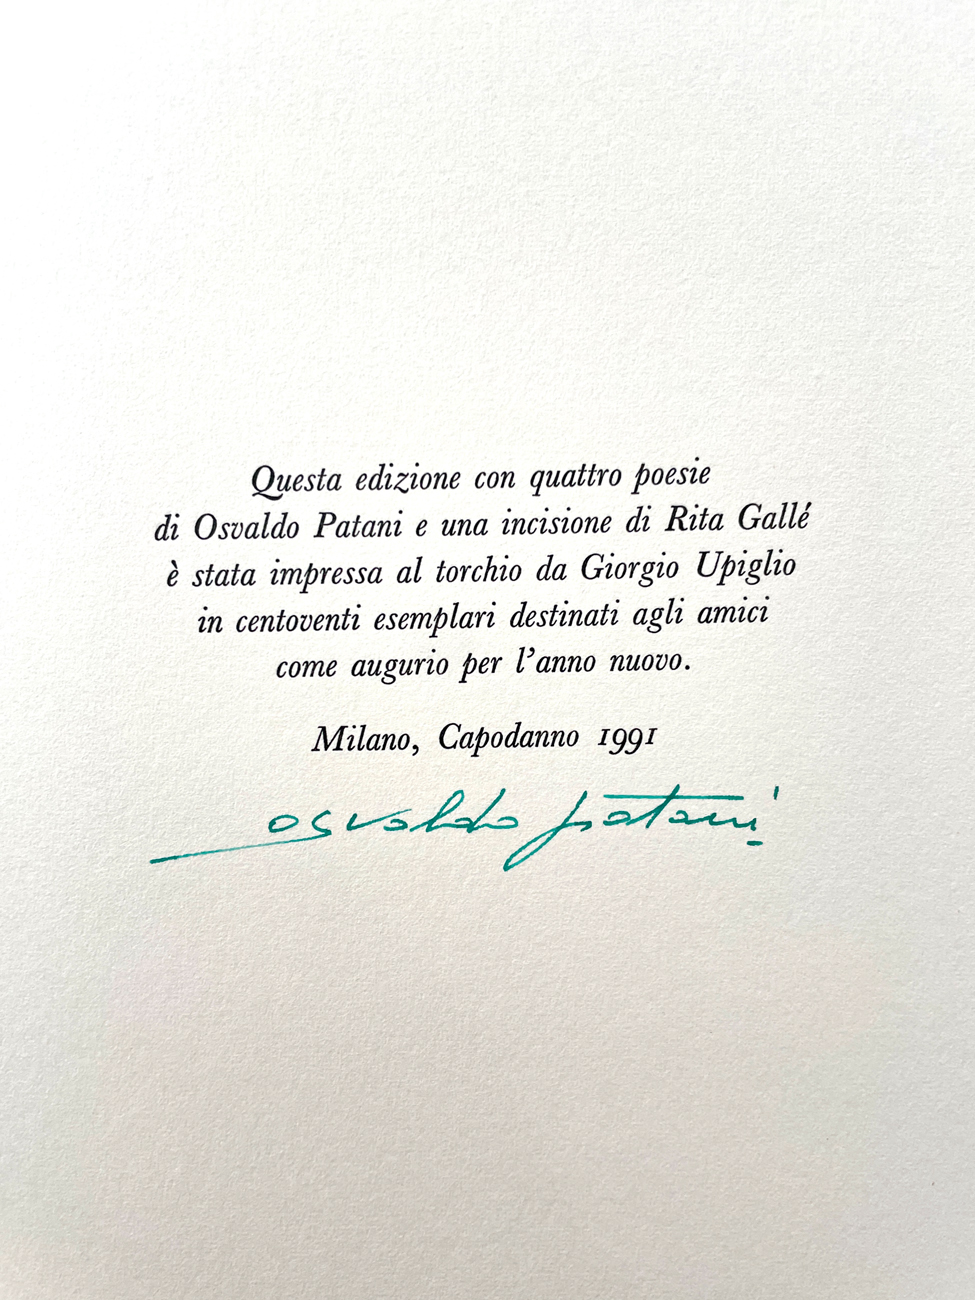 Questa edizione con quattro poesie
di Osvaldo Patani e una incisione di Rita Gallé
è stata impressa al torchio da Giorgio Upiglio
in centoventi esemplari destinati agli amici
come augurio per l'anno nuovo.
Milano, Capodanno 1991
osvaldo patani